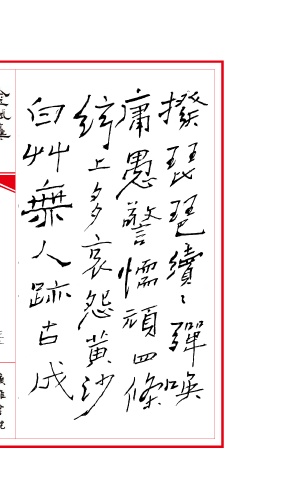 撥琵琶續〻彈喚
庸愚警懦頑四條
絃上多哀怨黄沙
白艸無人跡古戍